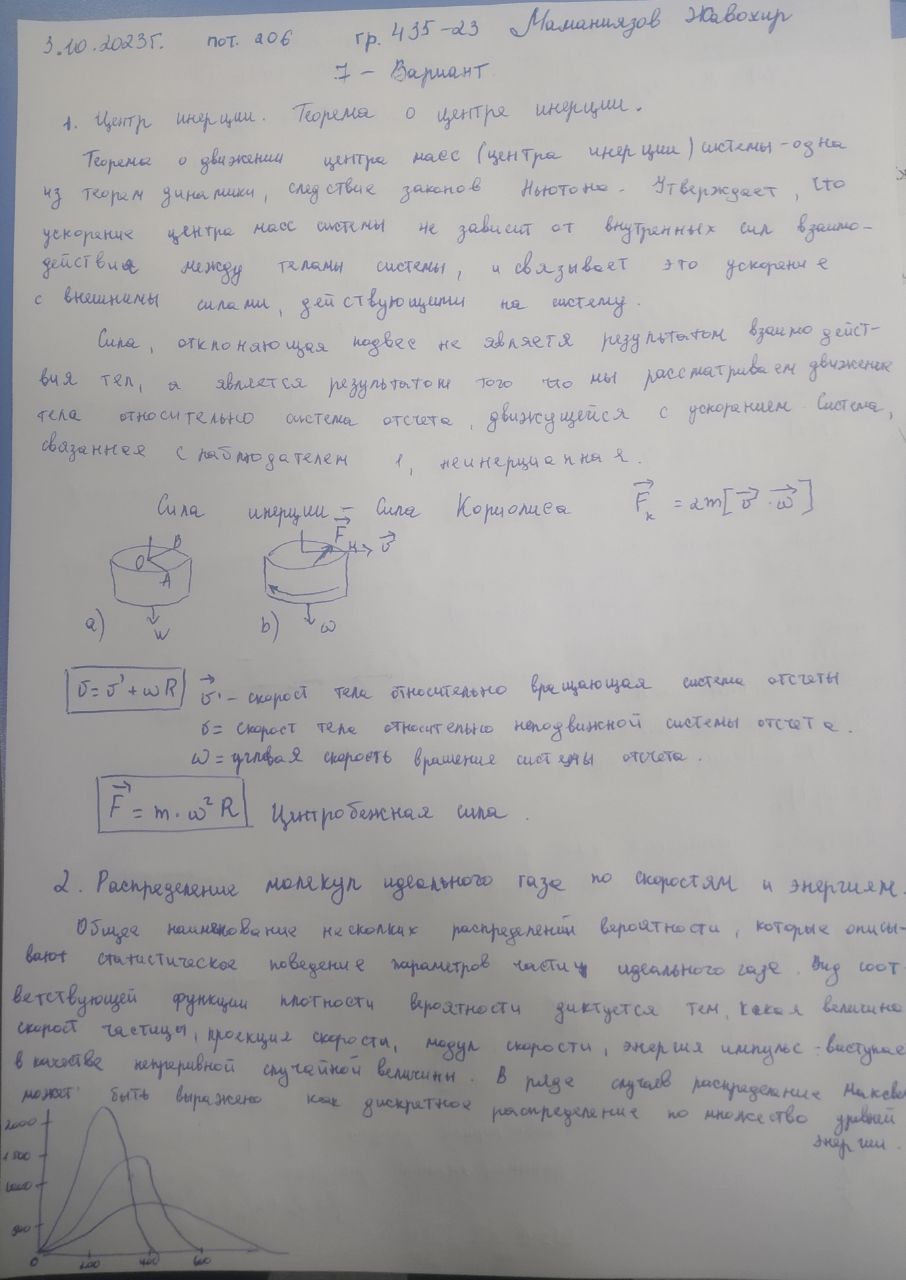 3.10.2023г. пот. 206 гр. 435-23 Маманиязов Жавохир
7 - Вариант
1. Центр инерции. Теорема о центре инерции.
Теорема о движении центра масс (центра инерции) системы - одна
из теорем динамики, следствие законов Ньютона. Утверждает, что
ускорание центра масс системы не зависит от внутренных сил взаимо-
действия между телами системы, и связывает это ускорение
с внешнимы силами, действующими на систему.
Сила, отклоняющая подвес не является результатом взаимодейст-
вия тел, а является результатом того что мы рассматриваем движение
тела относительно система отсчета, движущейся с ускоранием. Система,
связанная с наблюдателем 1, неинерциальная.
Сила инерции - Сила Кориолиса F→к = 2m[υ→ · ω→]
O B A F→ к υ→
a) ω b) ω
υ = υ' + ωR υ→' - скорост тела относительно вращающая система отсчеты
υ = скорост тела относительно неподвижной системы отсчета.
ω = угловая скорость врашение системы отсчета.
F→ = m · ω² R Центробежная сила.
2. Распределение молекул идеального газа по скоростям и энергиям.
Общее наименование нескольких распределений вероятности, которые описы-
вают статистическое поведение параметров частиц идеального газа. Вид соот
ветствующей функции плотности вероятности диктуется тем, какая величина
скорост частицы, проекция скорости, модул скорости, энергия импульс - выступае
в качестве непреривной случайной величины. В ряде случаев распределение Максве
может быть выражено как дискретное распределение по множество уровней
энергии.
2000
1500
1000
500
0 200 400 600